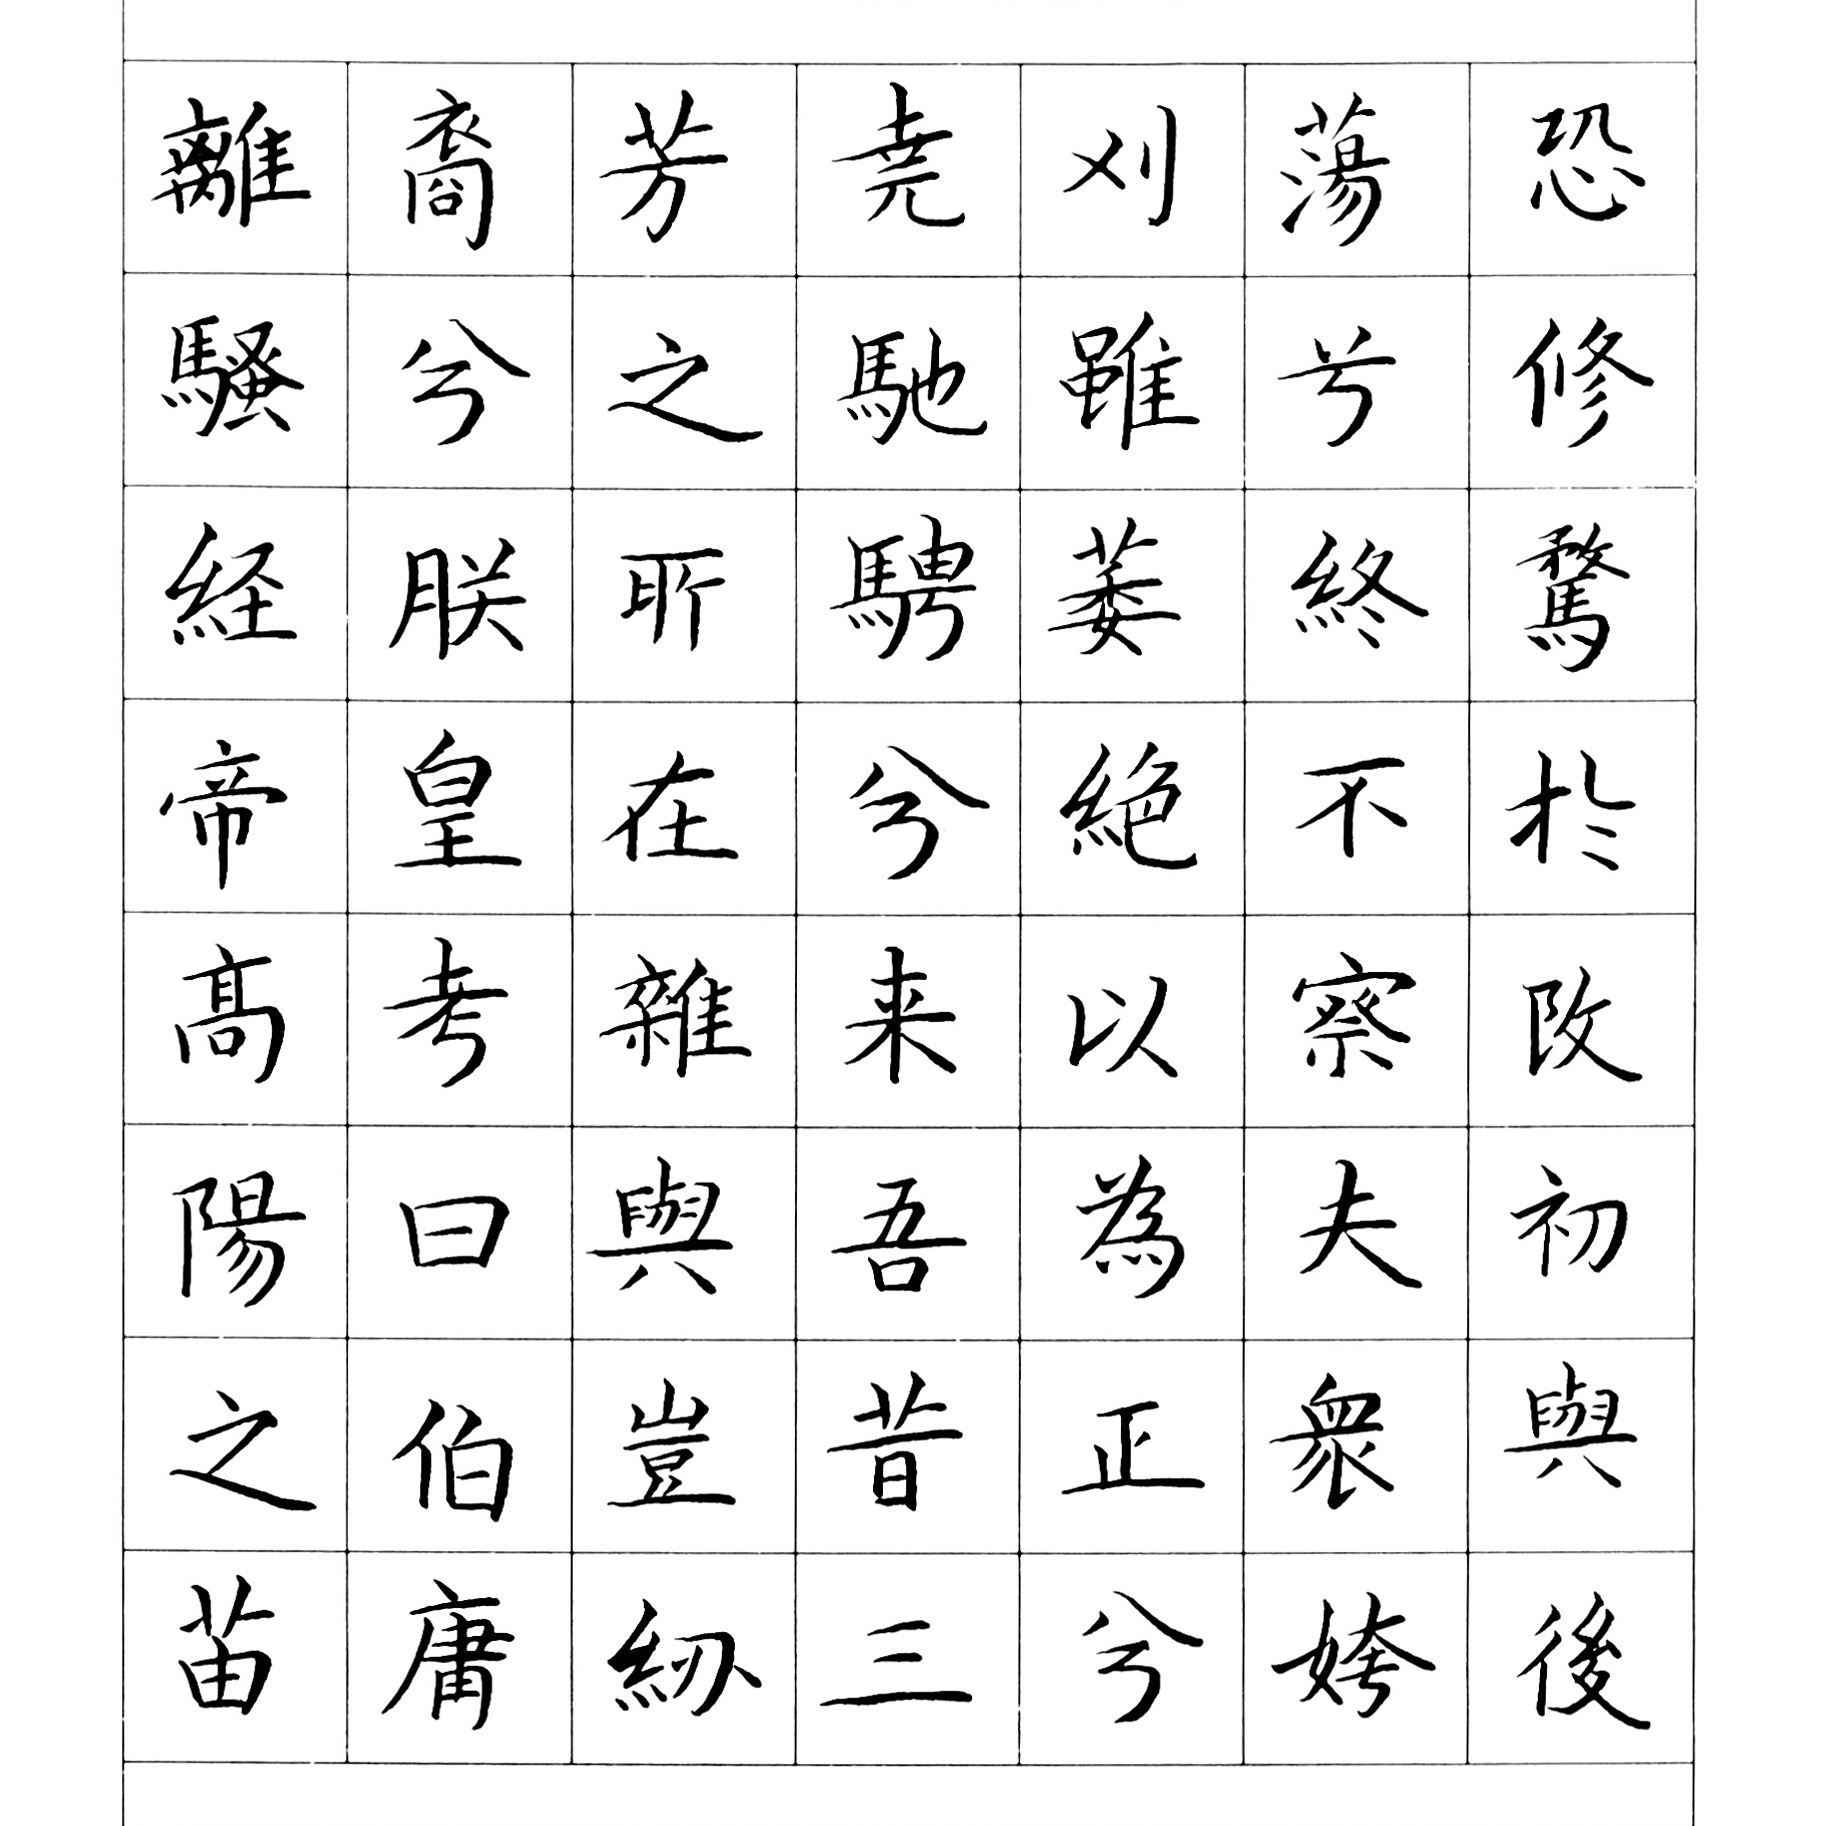 離騷経帝髙陽之苗
裔兮朕皇考曰伯庸
芳之所在雜與豈紉
尭馳騁兮来吾昔三
刈雖萎絶以為正兮
蕩兮終不察夫衆姱
恐修騖於改初與後